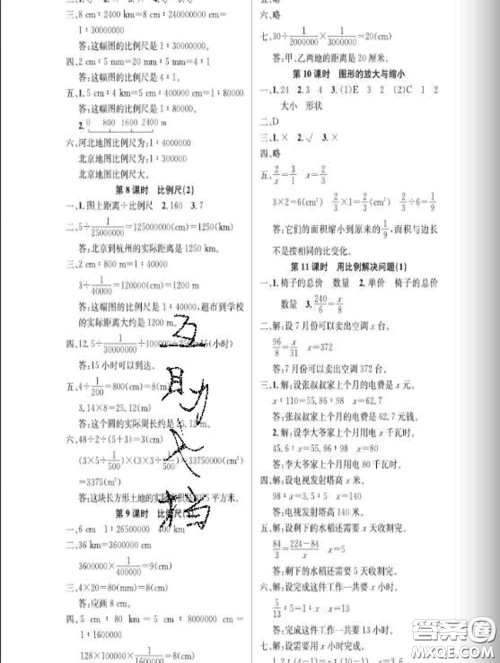 三、8 cm : 2400 km = 8 cm : 240000000 cm =
1 : 30000000
答:这幅图的比例尺是 1 : 30000000。
四、2 cm : 5 mm = 20 mm : 5 mm = 4 : 1
答:这幅图的比例尺是 4 : 1。
五、1. 5 cm : 4 km = 5 cm : 400000 cm = 1 : 80000
2. 0 800 1600 2400 m
六、河北地图比例尺为:1 : 4000000
北京地图比例尺为:1 : 1600000
北京地图大。
第 8 课时 比例尺(2)
一、1. 图上距离÷比例尺 2. 160 3. 7
二、5÷1/25000000=125000000(cm)=1250(km)
答:北京到杭州的实际距离是 1250 km。
三、2 cm : 800 m = 1 : 40000
3÷1/40000=120000(cm)=1200(m)
答:这幅图的比例尺是 1 : 40000,超市到学校
的实际距离大约是 1200 m。
(小时)
答:15 小时可以到达。
五、4÷1/200=800(cm)=8(m)
3.14×8=25.12(m)
答:这个圆的实际周长约是 25.12 m。
六、48÷2÷(5+3)=3(cm)
(3×5÷1/500)×(3×3÷1/500)=33750000(cm²)
=3375(m²)
答:这块长方形土地的实际面积是3375 平方米。
第 9 课时 比例尺(3)
一、6 cm 1 : 26500000 400 km
二、36 km=3600000 cm
3600000×=9(cm)
三、4×20=80(mm)=8(cm)
答:应画 8 cm。
四、5 cm : 80 km = 5 cm : 8000000 cm =
1 : 1600000
128×100000×1/1600000=8(cm)
六、略
七、30÷×1/2000000=20(cm)
答:甲、乙两地的距离是 20 厘米。
第 10 课时 图形的放大与缩小
一、1. 24 2. 3 4 3. (1)E 3 (2)C 1 2
大小 形状
二、D
三、1. × 2. √ 3. ×
四、略
五、2/x=3/1 x=2/3
3×2=6(cm²) 2/3×1=2/3(cm²) 2/3÷6=1/9
答:它们的面积缩小到原来的1/9,面积与边长
不是按相同的比变化。
第 11 课时 用比例解决问题(1)
一、1. 椅子的总价 数量 2. 单价 椅子的总价
数量 3. 240/6=x/8
二、解:设 7 月份可以卖出空调 x 台。
96/8=x/31 x=372
答:7 月份可以卖出空调 372 台。
三、1. 解:设张叔叔家上个月的电费是 x 元。
答:张叔叔家上个月的电费是 62.7 元。
2. 解:设李大爷家上个月用电 x 千瓦时。
答:李大爷家上个月用电 80 千瓦时。
四、解:设电视发射塔高 x 米。
98 : x=3.5 : 5 x=140
答:电视发射塔高 140 米。
五、解:设剩下的水稻还需 x 天收割完。
84/3=224-84/x x=5
答:剩下的水稻还需 5 天收割完。
六、解:设完成这件工作一共要 x 小时。
5/13 : 5=1 : x x=13
答:完成这件工作一共要 13 小时。
互助文档
答案圈
MXQE.COM